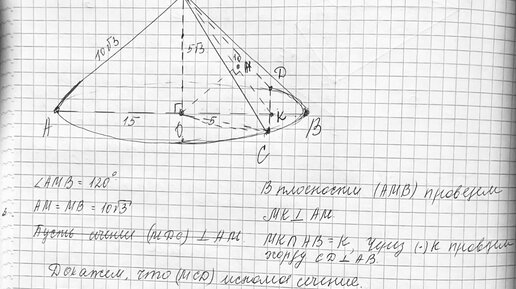 10√3
5√3
10
H
D
A
15
O
5
K
B
C
∠AMB = 120°
AM = MB = 10√3
Пусть сечение (MDC) ⊥ AM.
В плоскости (AMB) проведем
MK ⊥ AM
MK∩AB = K, через (·)K проведем
хорду CD ⊥ AB.
Докажем, что (MCD) искомое сечение.